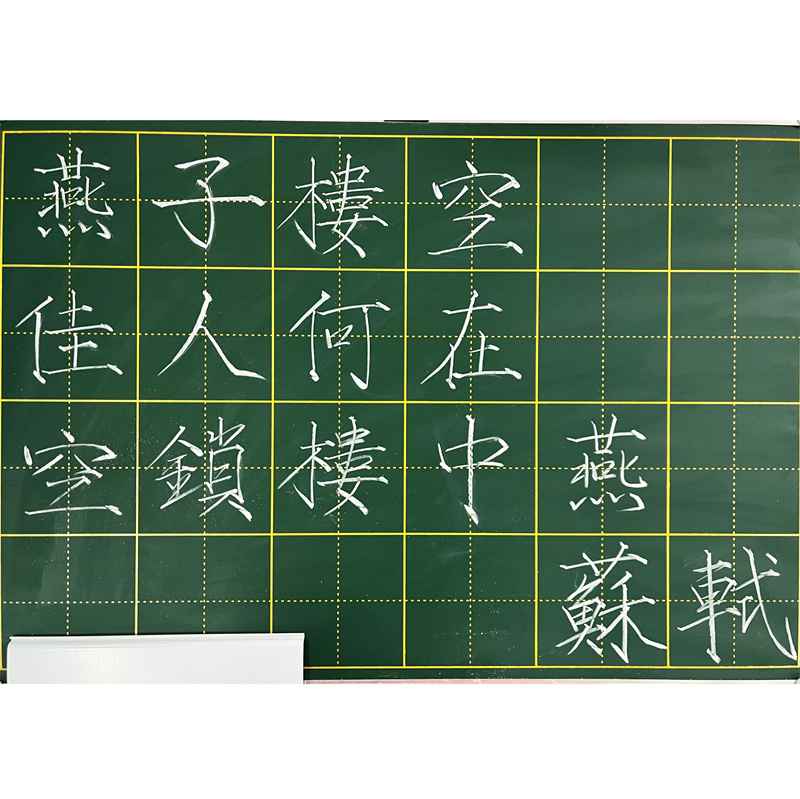 燕子樓空
佳人何在
空鎖樓中燕
蘇軾